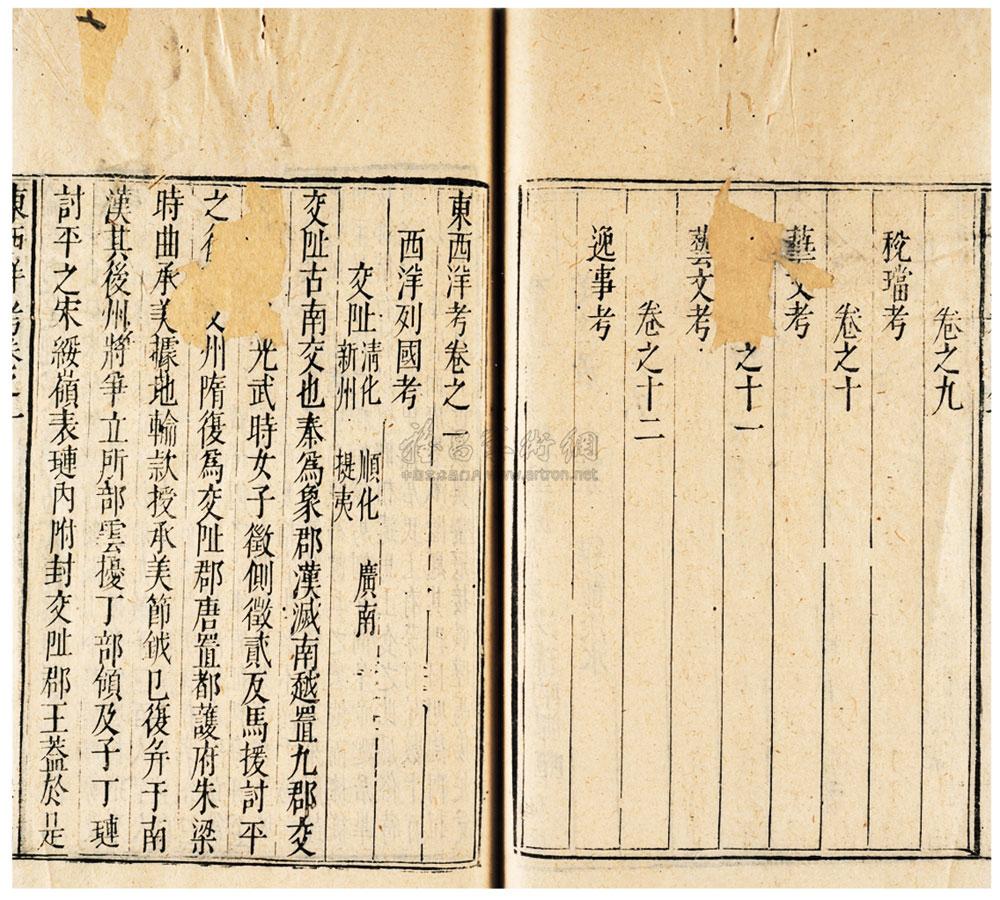 卷之九
稅璫考
卷之十
藝文考
之十一
藝文考
卷之十二
逸事考
東西洋考卷之一
西洋列國考
交阯 清化 順化 廣南 新州 提夷
交阯古南交也秦爲象郡漢滅南越置九郡交
光武時女子徵側徵貳反馬援討平
之 州隋復爲交阯郡唐置都護府朱梁
時曲承美據地輸款授承美節鉞已復并于南
漢其後州將爭立所部雲擾丁部領及子丁璉
討平之宋綏嶺表璉內附封交阯郡王蓋於是
東西洋考卷之一
www.artron.net